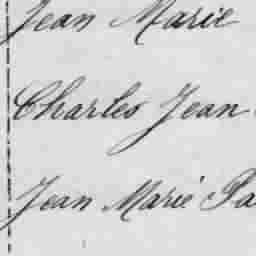 Jean Marie
Charles Jean
Jean Marie Pa